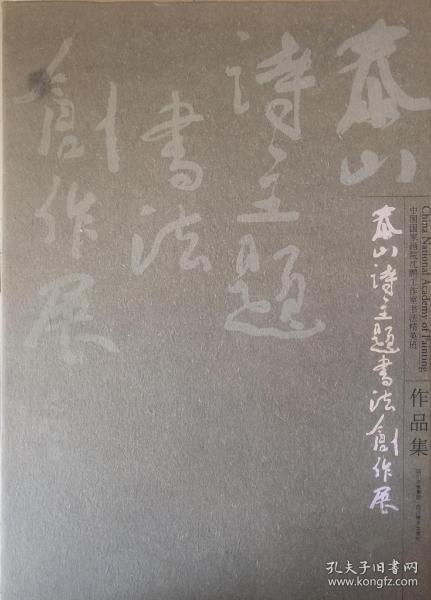 泰山
诗主题
书法
創作展
泰山诗主题书法創作展
China National Academy of Painting
中国国家画院沈鹏工作室书法精英班
作品集
孔夫子旧书网
www.kongfz.com